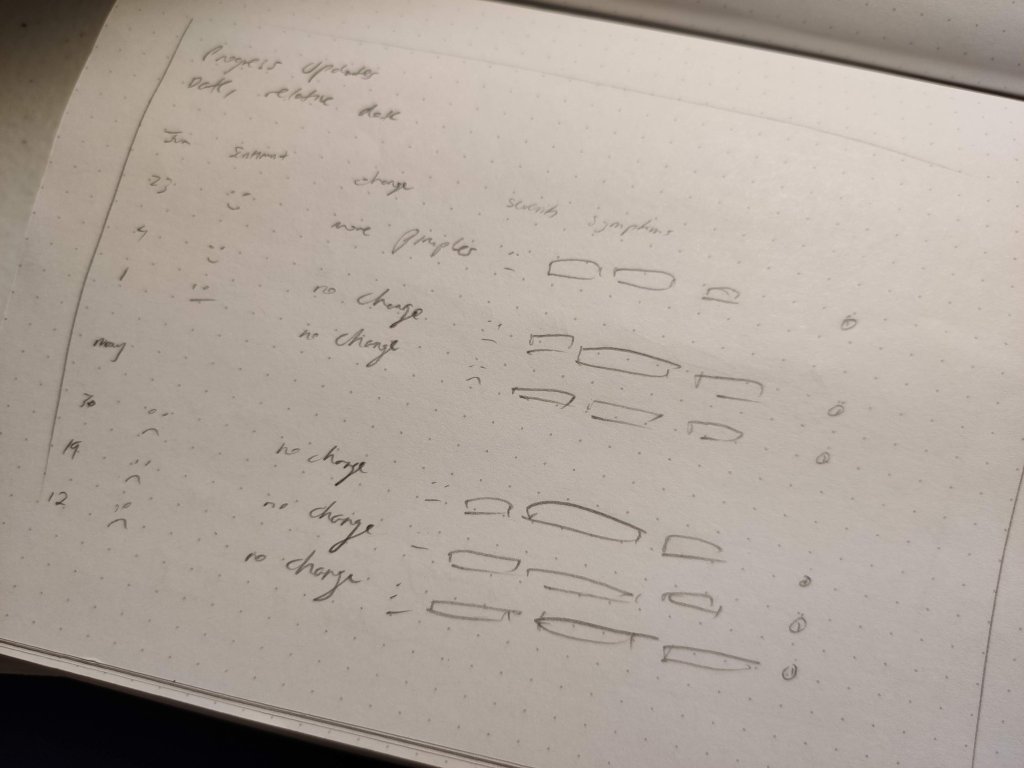 Progress updates
Date, relative date
Jun sentiment change severity symptoms
23 more pimples
4 no change
1 no change
may
30 no change
19 no change
12 no change